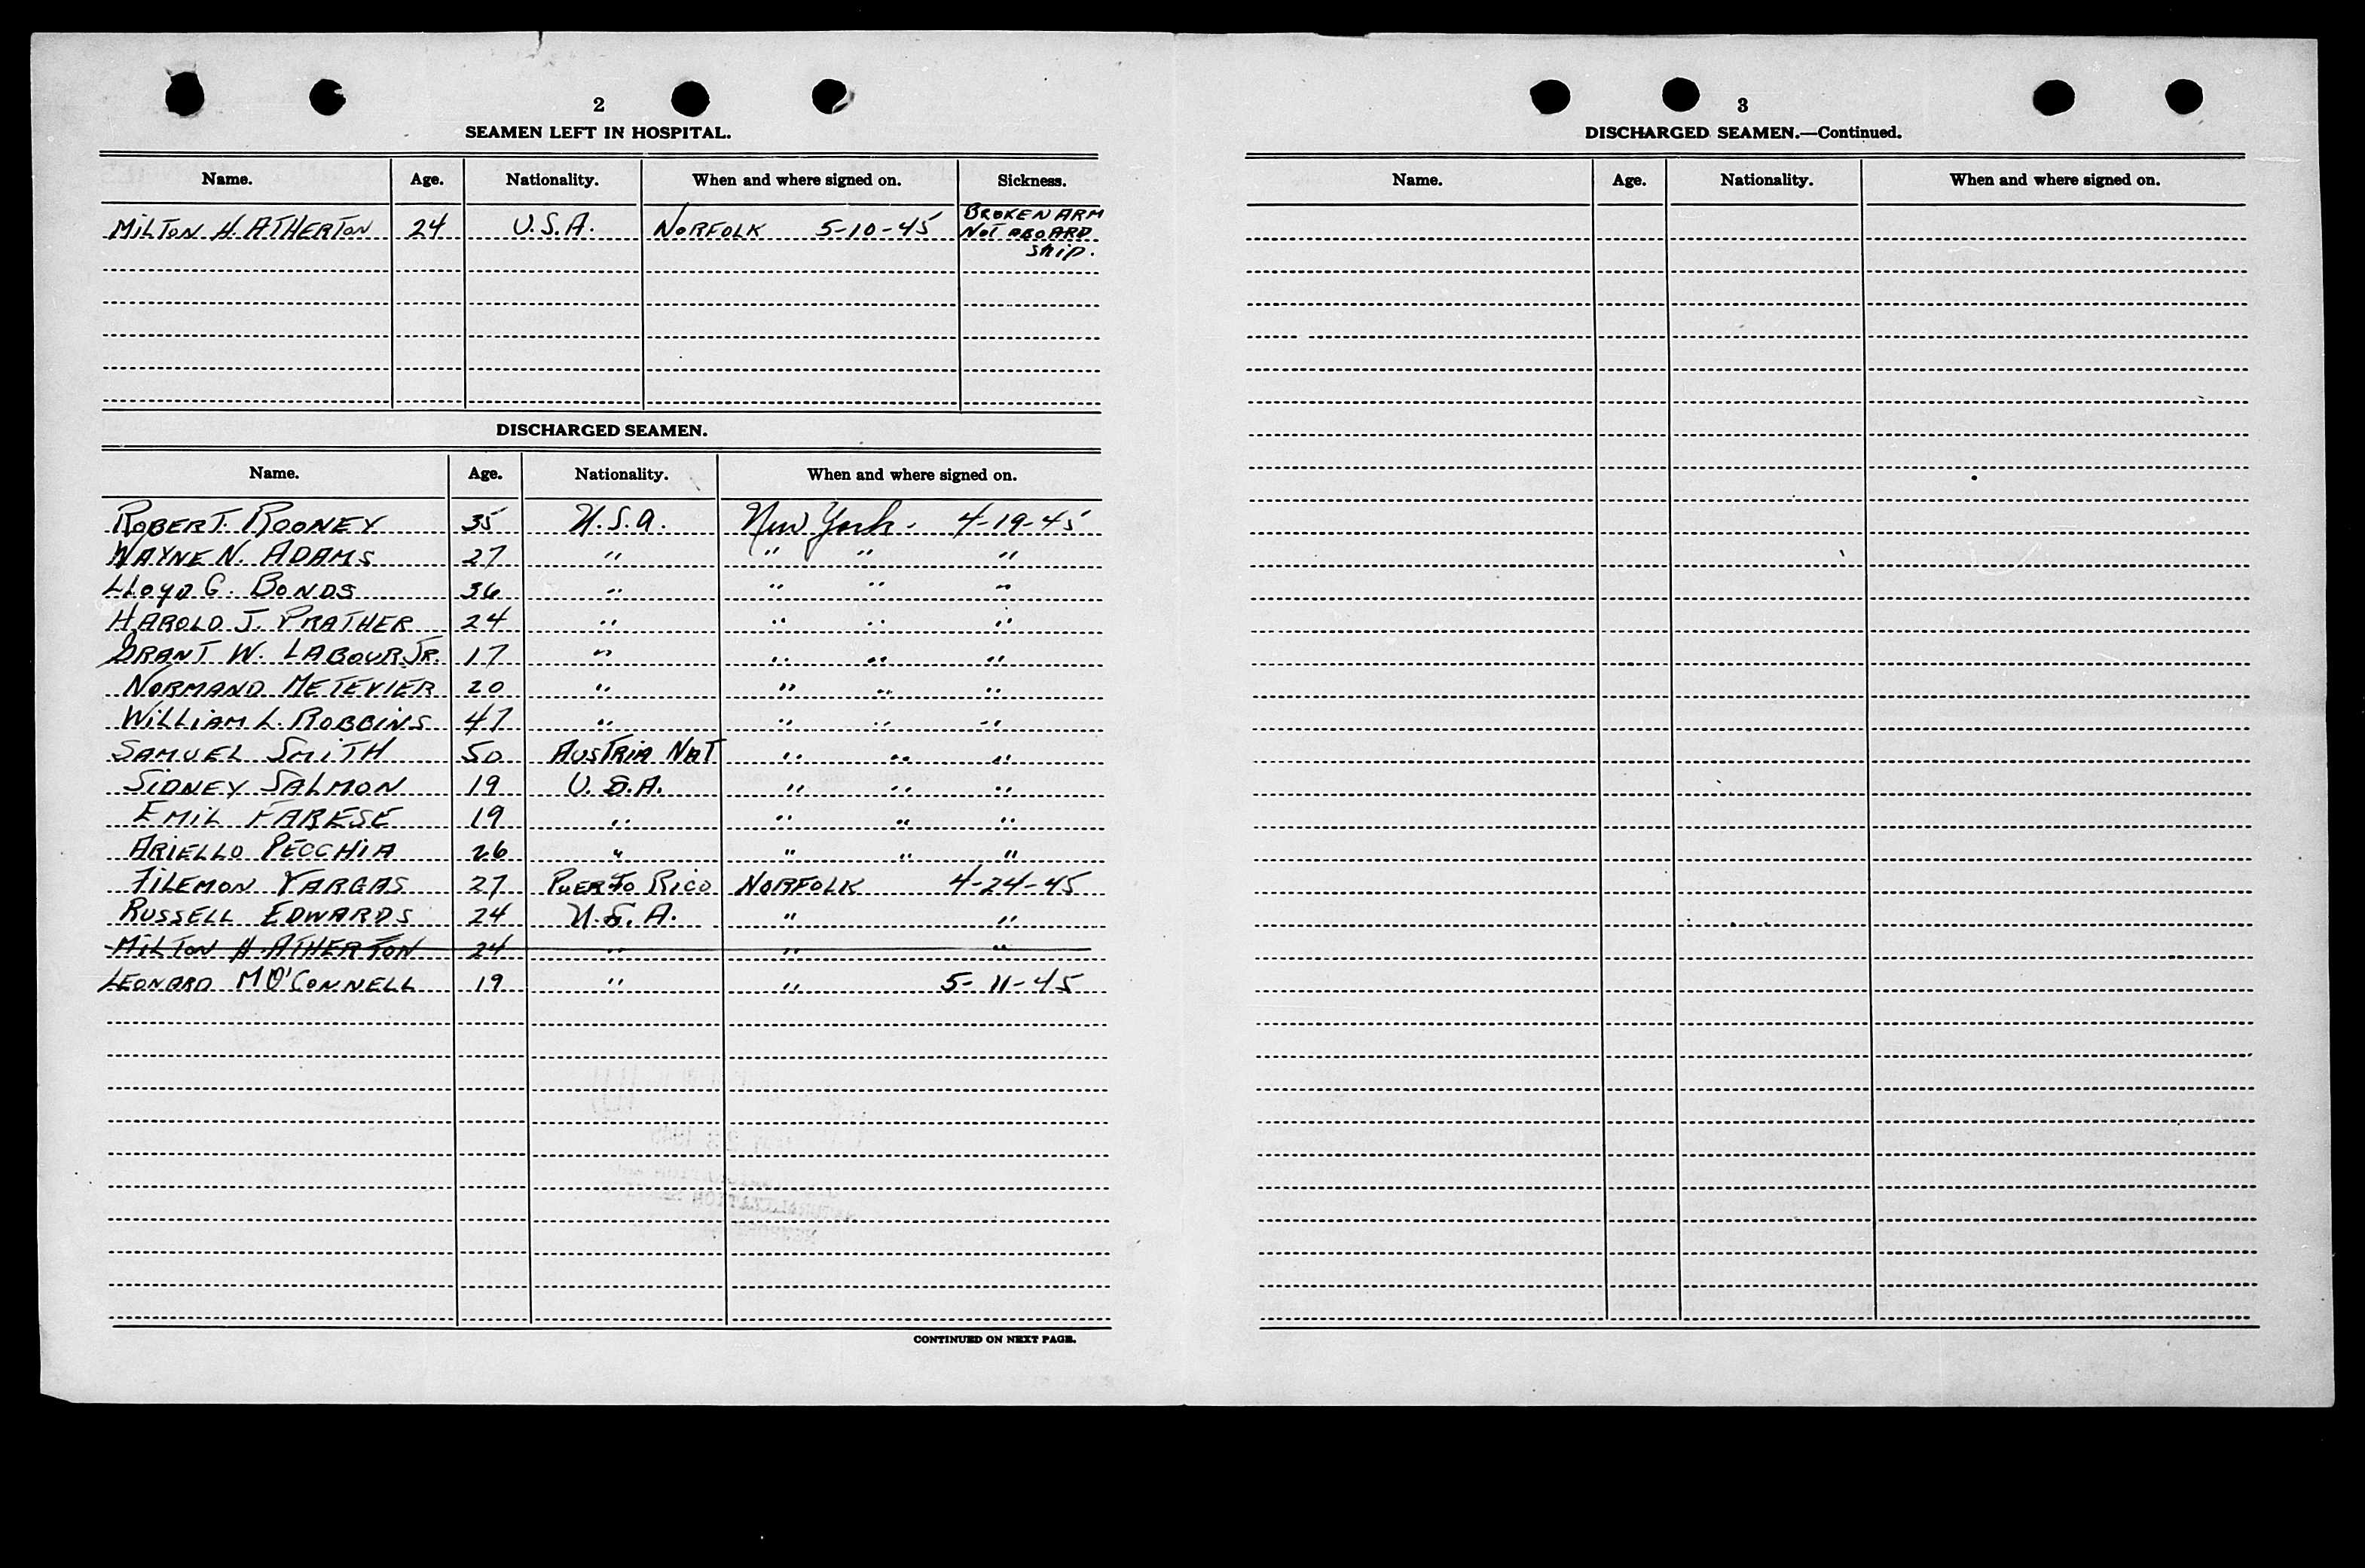 2
SEAMEN LEFT IN HOSPITAL.
Name. Age. Nationality. When and where signed on. Sickness.
MILTON H. ATHERTON 24 U.S.A. NORFOLK 5-10-45 BROKEN ARM NOT ABOARD SHIP.
DISCHARGED SEAMEN.
Name. Age. Nationality. When and where signed on.
ROBERT. ROONEY 35 U.S.A. New York - 4-19-45
WAYNE N. ADAMS 27 " " " "
LLOYD G. BONDS 36 " " " "
HAROLD J. PRATHER 24 " " " "
GRANT W. LABOUR JR. 17 " " " "
NORMAND METEVIER 20 " " " "
WILLIAM L. ROBBINS 47 " " " "
SAMUEL SMITH 50 AUSTRIA NAT " " "
SIDNEY SALMON 19 U.S.A. " " "
EMIL FARESE 19 " " " "
ARIELLO PECCHIA 26 " " " "
FILEMON VARGAS 27 PUERTO RICO NORFOLK 4-24-45
RUSSELL EDWARDS 24 U.S.A. " "
MILTON H. ATHERTON 24 " " "
LEONARD M O'CONNELL 19 " " 5-11-45
CONTINUED ON NEXT PAGE.
3
DISCHARGED SEAMEN.—Continued.
Name. Age. Nationality. When and where signed on.